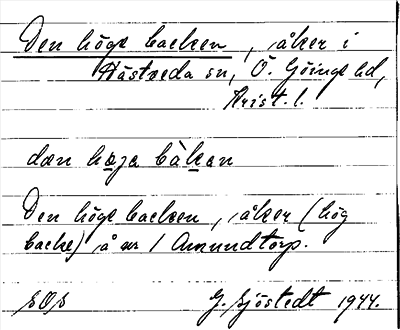 Den höge backen, åker i
Hästveda sn, Ö. Göinge hd,
Krist. l.
dæn høja bàkan
Den höge backen, åker (hög
backe) å nr 1 Amundtorp.
SOS G. Sjöstedt 1944.